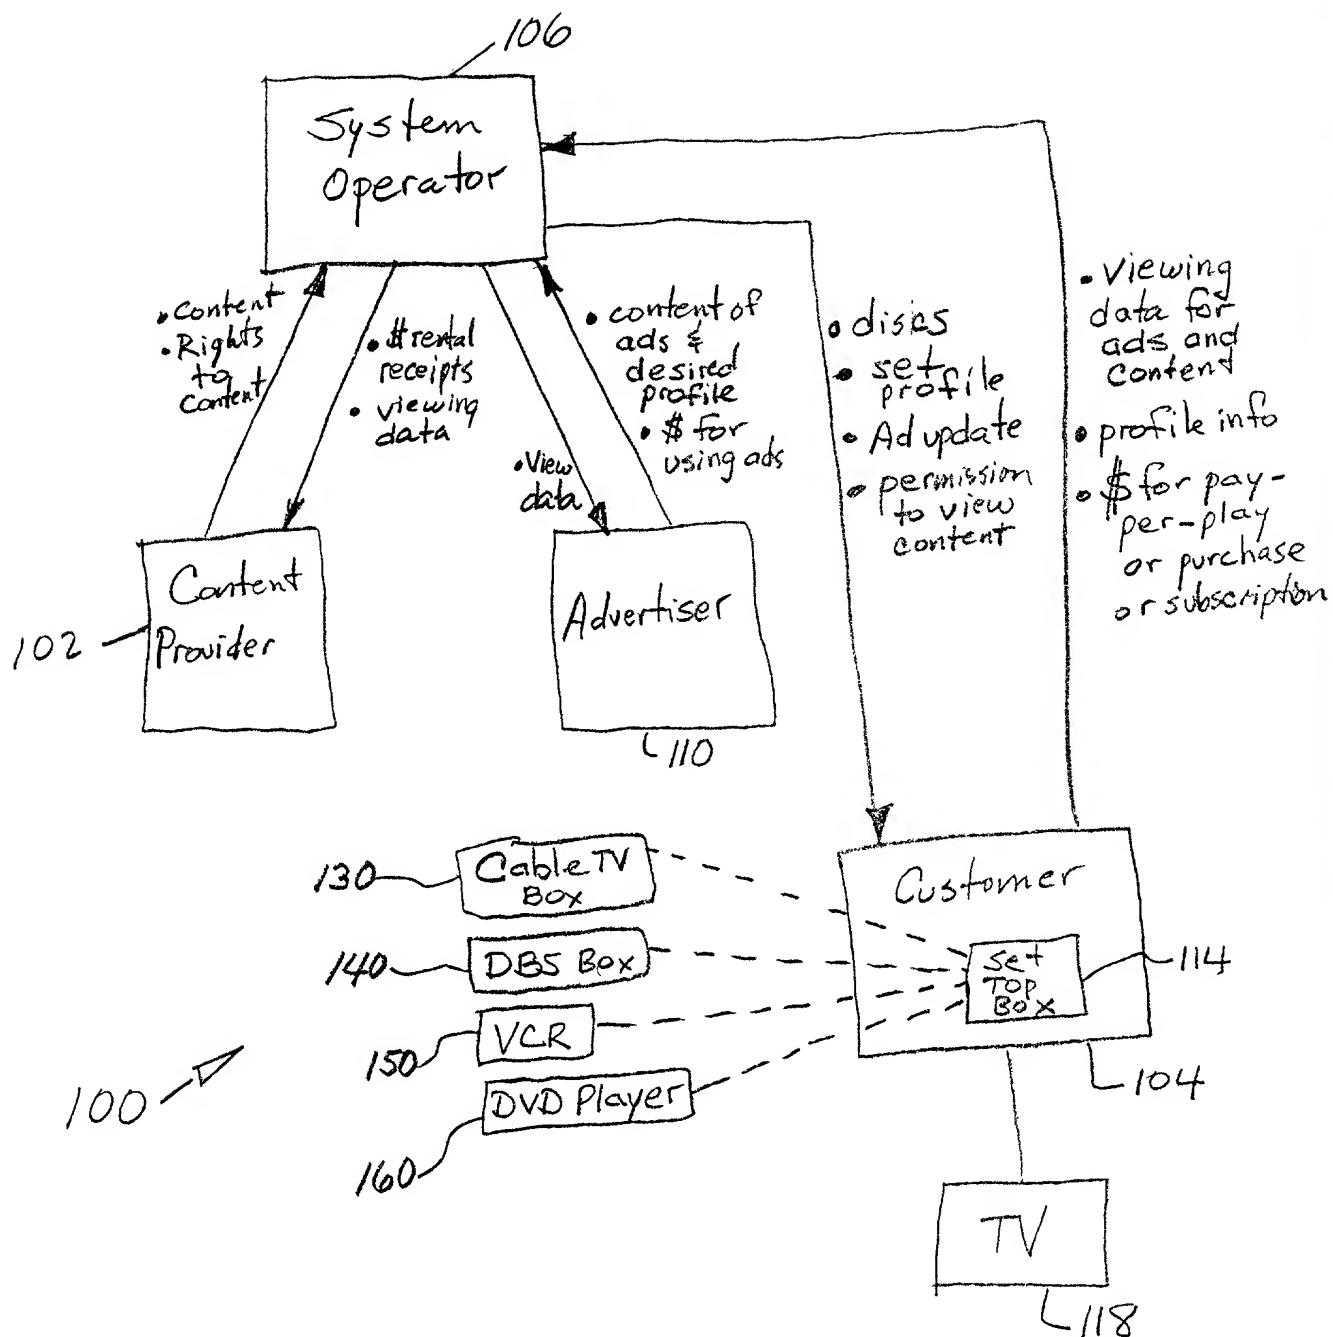 106
System
Operator
• Content
• Rights
to
Content
• $rental
receipts
• viewing
data
• View
data
• content of
ads &
desired
profile
• $ for
using ads
• discs
• set
profile
• Ad update
• permission
to view
content
• Viewing
data for
ads and
content
• profile info
• $ for pay-
per-play
or purchase
or subscription
102
Content
Provider
Advertiser
110
130
Cable TV
Box
140
DBS Box
150
VCR
160
DVD Player
Customer
Set
TOP
BOX
114
104
100
TV
118